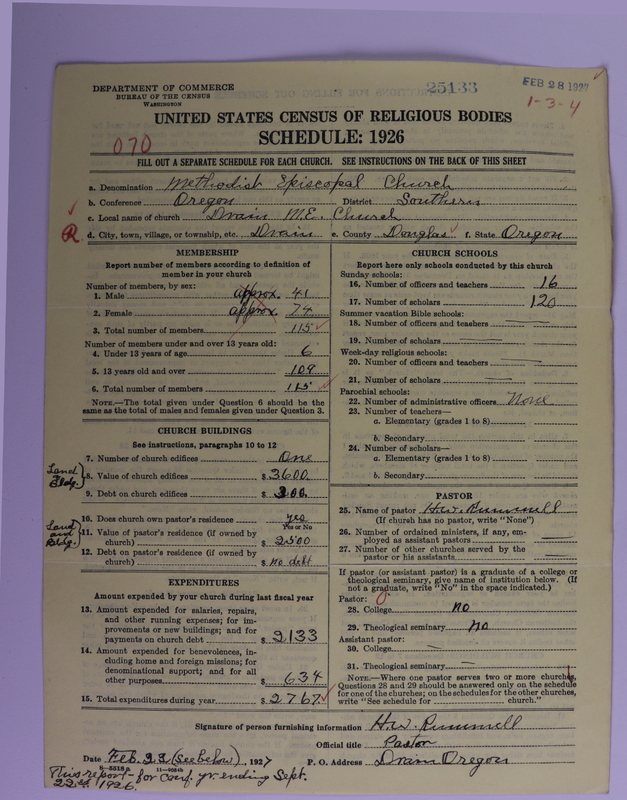 DEPARTMENT OF COMMERCE
BUREAU OF THE CENSUS
WASHINGTON
25133
FEB 28 1927
1-3-4
UNITED STATES CENSUS OF RELIGIOUS BODIES
SCHEDULE: 1926
070
FILL OUT A SEPARATE SCHEDULE FOR EACH CHURCH. SEE INSTRUCTIONS ON THE BACK OF THIS SHEET
a. Denomination Methodist Episcopal Church
b. Conference Oregon District Southern
c. Local name of church Drain M.E. Church
R d. City, town, village, or township, etc. Drain e. County Douglas f. State Oregon
MEMBERSHIP
Report number of members according to definition of
member in your church
Number of members, by sex:
1. Male approx. 41
2. Female approx. 74
3. Total number of members 115
Number of members under and over 13 years old:
4. Under 13 years of age 6
5. 13 years old and over 109
6. Total number of members 115
NOTE.—The total given under Question 6 should be the
same as the total of males and females given under Question 3.
CHURCH BUILDINGS
See instructions, paragraphs 10 to 12
7. Number of church edifices One
Land
Bldg.
8. Value of church edifices $3600.
9. Debt on church edifices $300.
10. Does church own pastor's residence yes
Yes or No
Land
and
Bldg.
11. Value of pastor's residence (if owned by
church) $2500
12. Debt on pastor's residence (if owned by
church) $ no debt
EXPENDITURES
Amount expended by your church during last fiscal year
13. Amount expended for salaries, repairs,
and other running expenses; for im-
provements or new buildings; and for
payments on church debt $2133
14. Amount expended for benevolences, in-
cluding home and foreign missions; for
denominational support; and for all
other purposes $634
15. Total expenditures during year $2767.
CHURCH SCHOOLS
Report here only schools conducted by this church
Sunday schools:
16. Number of officers and teachers 16
17. Number of scholars 120
Summer vacation Bible schools:
18. Number of officers and teachers
19. Number of scholars
Week-day religious schools:
20. Number of officers and teachers
21. Number of scholars
Parochial schools:
22. Number of administrative officers None
23. Number of teachers—
a. Elementary (grades 1 to 8)
b. Secondary
24. Number of scholars—
a. Elementary (grades 1 to 8)
b. Secondary
PASTOR
25. Name of pastor H.W. Rummell
(If church has no pastor, write "None")
26. Number of ordained ministers, if any, em-
ployed as assistant pastors
27. Number of other churches served by the
pastor or his assistants
If pastor (or assistant pastor) is a graduate of a college or
theological seminary, give name of institution below. (If
not a graduate, write "No" in the space indicated.)
Pastor:
28. College no
29. Theological seminary no
Assistant pastor:
30. College
31. Theological seminary
NOTE.—Where one pastor serves two or more churches,
Questions 28 and 29 should be answered only on the schedule
for one of the churches; on the schedules for the other churches,
write "See schedule for church."
Signature of person furnishing information H.W. Rummell
Official title Pastor
Date Feb. 23 (see below), 1927 P. O. Address Drain Oregon
This report for conf. yr. ending Sept.
22nd 1926.